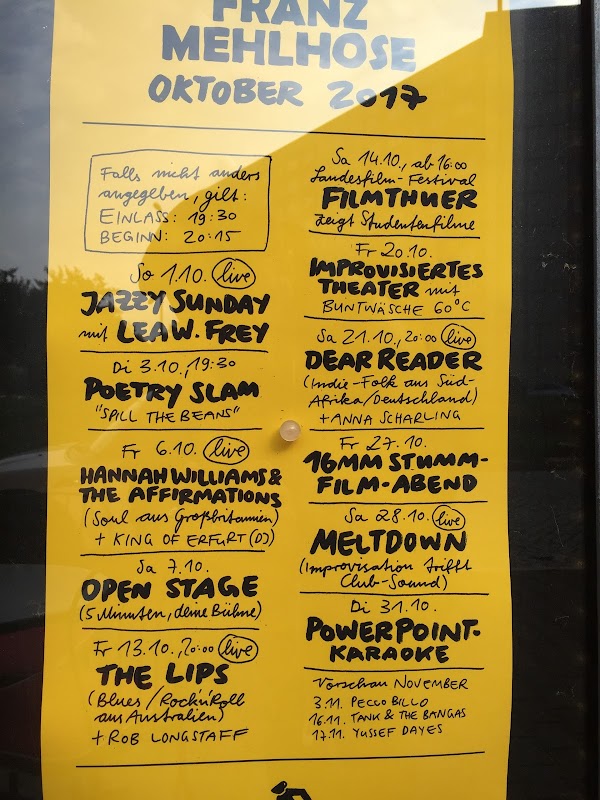 FRANZ
MEHLHOSE
OKTOBER 2017
Falls nicht anders
angegeben, gilt:
EINLASS: 19:30
BEGINN: 20:15
So 1.10. live
JAZZY SUNDAY
mit LEA W. FREY
Di 3.10., 19:30
POETRY SLAM
"SPILL THE BEANS"
Fr 6.10. live
HANNAH WILLIAMS &
THE AFFIRMATIONS
(Soul aus Großbritannien)
+ KING OF ERFURT (DJ)
Sa 7.10.
OPEN STAGE
(5 Minuten, deine Bühne)
Fr 13.10., 20:00 live
THE LIPS
(Blues/Rock'n'Roll
aus Australien)
+ ROB LONGSTAFF
Sa 14.10., ab 16:00
Landesfilm-Festival
FILMTHUER
zeigt Studentenfilme
Fr 20.10.
IMPROVISIERTES
THEATER mit
BUNTWÄSCHE 60°C
Sa 21.10., 20:00 live
DEAR READER
(Indie-Folk aus Süd-
Afrika/Deutschland)
+ ANNA SCHARLING
Fr 27.10.
16MM STUMM-
FILM-ABEND
Sa 28.10. live
MELTDOWN
(Improvisation trifft
Club-Sound)
Di 31.10.
POWERPOINT-
KARAOKE
Vorschau NOVEMBER
3.11. PECCO BILLO
16.11. TANK & THE BANGAS
17.11. YUSSEF DAYES